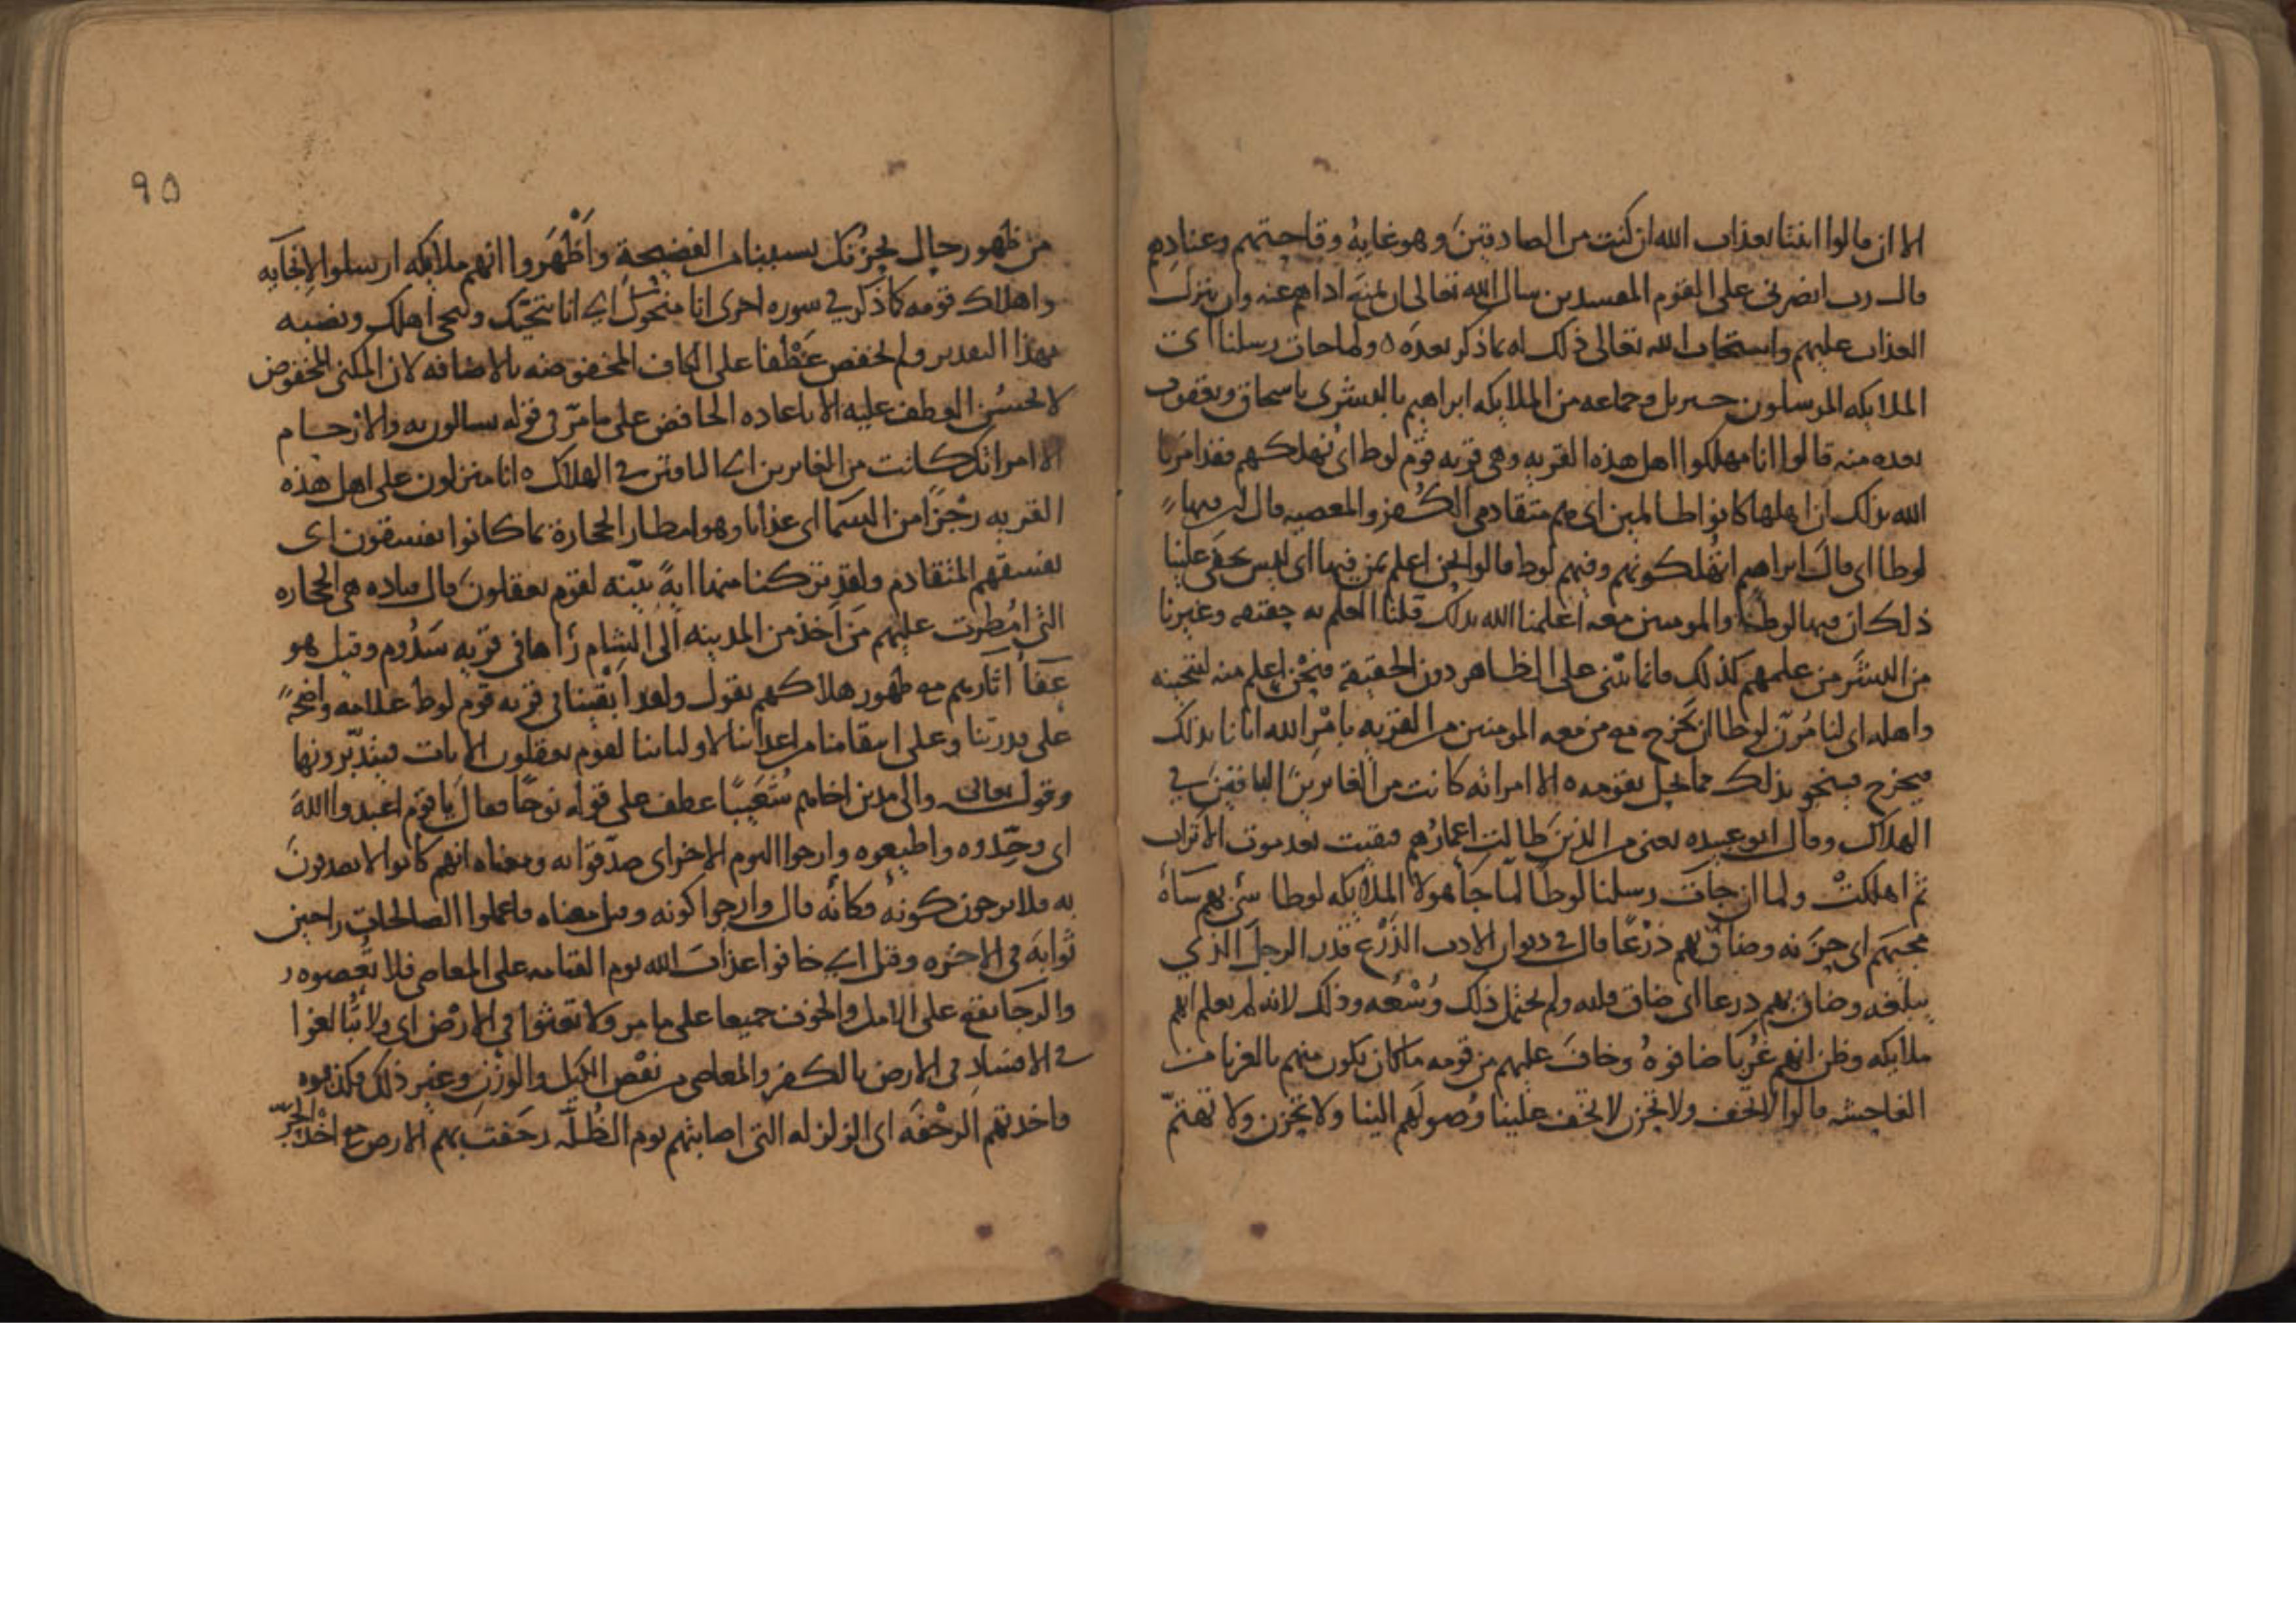 الا ان قالوا ائتنا بعذاب الله ان كنت من الصادقين وهو غاية وقاحتهم وعنادهم
قال رب انصرني على القوم المفسدين سال الله تعالى ان يمنع اذاهم عنه وان ينزل
العذاب عليهم واستجاب الله تعالى ذلك له بما ذكر بعده ولما جات رسلنا اى
الملايكه المرسلون جبريل وجماعه من الملايكه ابراهيم بالبشرى باسحاق ويعقوب
بعده منه قالوا انا مهلكوا اهل هذه القريه وهي قريه قوم لوط اى نهلكهم فقد امرنا
الله بذلك ان اهلها كانوا ظالمين اى هم متقادمى الكفر والمعصيه قال ان فيها
لوطا اى قال ابراهيم اتهلكونهم وفيهم لوط قالوا نحن اعلم بمن فيها اى ليس يخفى علينا
ذلك ان فيها لوطا والمومنين معه اعلمنا الله بذلك قلنا العلم به حقيقه وغيرنا
من البشر من علمهم كذلك فانما يبنى على الظاهر دون الحقيقة فنحن اعلم منه لننجينه
واهله اى لنامرن لوطا ان يخرج مع من معه المومنين من القريه بامر الله ايانا بذلك
فيخرج فينجو بذلك مما يحل بقومه الا امراته كانت من الغابرين الباقين في
الهلاك وقال ابو عبيده يعنى من الذين طالت اعمارهم فبقيت بعد موت الاتراب
ثم اهلكت ولما ان جات رسلنا لوطا لما جا هولا الملايكه لوطا سئ بهم ساه
مجيهم اى حزنه وضاق بهم ذرعا قال في ديوان الادب الذرع قدر الرجل الذي
يبلغه وضاق بهم ذرعا اى ضاق قلبه ولم يحتمل ذلك وسعه وذلك لانه لم يعلم انهم
ملايكه وظن انهم غربا ضافوه وخاف عليهم من قومه ما كان يكون منهم بالغربا من
الفاحشه قالوا لا تخف ولا تحزن لا تخف علينا وصولهم الينا ولا تحزن ولا تهتم
٩٥
من ظهور رجال يحزنك بسببنا من الفضيحة واظهروا انهم ملايكه ارسلوا لانجايه
واهلاك قومه كما ذكر في سوره اخرى انا منجوك اي انا ننجيك وننجى اهلك ونصبه
بهذا التقدير ولم يخفض عطفا على الكاف المخفوضه بالاضافه لان المكنى المخفوض
لا يحسن العطف عليه الا باعاده الخافض على ما مر في قوله تسالون به والارحام
الا امراتك كانت من الغابرين اي الباقين في الهلاك انا منزلون على اهل هذه
القريه رجزا من السما اى عذابا وهو امطار الحجارة بما كانوا يفسقون اى
بفسقهم المتقادم ولقد تركنا منها اية بينه لقوم يعقلون قال قتاده هي الحجاره
التي امطرت عليهم من اخذ من المدينه الى الشام راها في قريه سدوم وقيل هو
عفا اثارهم مع ظهور هلاكهم يقول ولقد ابقينا في قريه قوم لوط علامه واضحة
على قدرتنا وعلى انتقامنا من اعداينا لاوليائنا لقوم يعقلون الايات فيتدبرونها
وقوله تعالى والى مدين اخاهم شعيبا عطف على قوله نوحا فقال يا قوم اعبدوا الله
اى وحدوه واطيعوه وارجوا اليوم الاخر اى صدقوا به ومعناه انهم كانوا لا يصدقون
به فلا يرجون كونه فكانه قال وارجوا كونه وقيل معناه فاعملوا الصالحات راجين
ثوابه في الاخره وقيل اي خافوا عذاب الله يوم القيامه على المعاصي فلا تعصوه
والرجا يقع على الامل والخوف جميعا على ما مر ولا تعثوا في الارض اى ولا تبالغوا
في الافساد في الارض بالكفر والمعاصى من نقص الكيل والوزن وغير ذلك فكذبوه
فاخذتهم الرجفه اى الزلزله التي اصابتهم يوم الظلة رجفت بهم الارض مع اخذ الحر